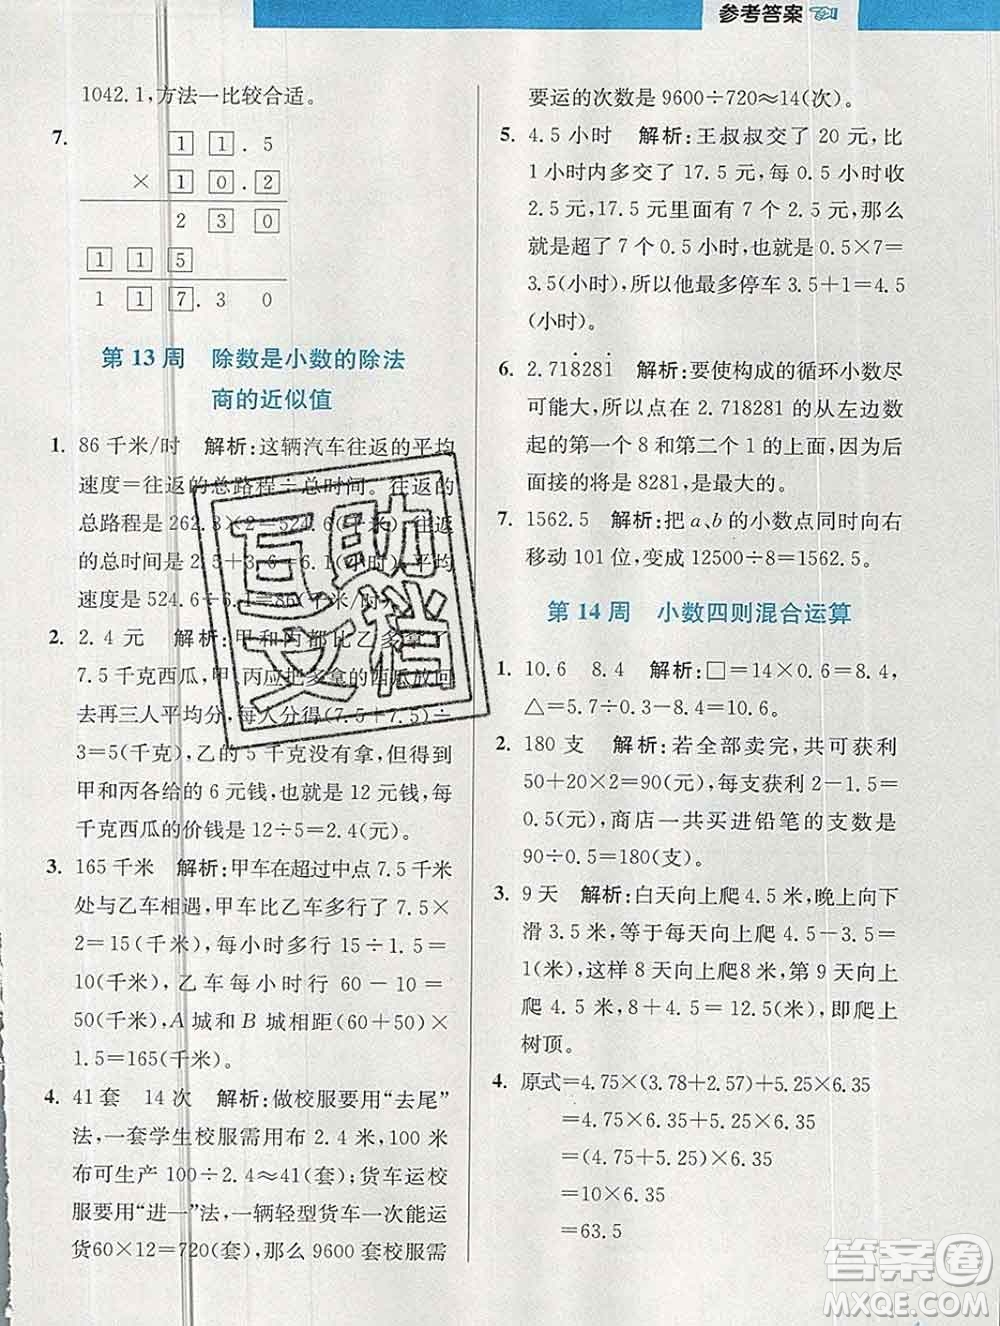 参考答案
1042.1,方法一比较合适。
7.
1 1.5
× 1 0.2
2 3 0
1 1 5
1 1 7.3 0
第 13 周 除数是小数的除法
商的近似值
1. 86 千米/时 解析:这辆汽车往返的平均
速度=往返的总路程÷总时间。往返的
总路程是 262.3×2=524.6(千米),往返
的总时间是 2.5+3.6=6.1(小时),平均
速度是 524.6÷6.1=86(千米/时)。
2. 2.4 元 解析:甲和丙都比乙多拿了
7.5 千克西瓜,甲、丙应把多拿的西瓜放回
去再三人平均分,每人分得(7.5+7.5)÷
3=5(千克),乙的 5 千克没有拿,折合成
甲和丙各给的 6 元钱,也就是 12 元钱,每
千克西瓜的价钱是 12÷5=2.4(元)。
3. 165 千米 解析:甲车在超过中点 7.5 千米
处与乙车相遇,甲车比乙车多行了 7.5×
2=15(千米),每小时多行 15÷1.5=
10(千米),乙车每小时行 60-10=
50(千米),A 城和 B 城相距(60+50)×
1.5=165(千米)。
4. 41 套 14 次 解析:做校服要用“去尾”
法,一套学生校服需用布 2.4 米,100 米
布可生产 100÷2.4≈41(套);货车运校
服要用“进一”法,一辆轻型货车一次能运
货60×12=720(套),那么 9600 套校服需
要运的次数是 9600÷720≈14(次)。
5. 4.5 小时 解析:王叔叔交了 20 元,比
1 小时内多交了 17.5 元,每 0.5 小时收
2.5 元,17.5 元里面有 7 个 2.5 元,那么
就是超了 7 个 0.5 小时,也就是 0.5×7=
3.5(小时),所以他最多停车 3.5+1=4.5
(小时)。
6. 2.71̇8281̇ 解析:要使构成的循环小数尽
可能大,所以点在 2.718281 的从左边数
起的第一个 8 和第二个 1 的上面,因为后
面接的将是 8281,是最大的。
7. 1562.5 解析:把 a、b 的小数点同时向右
移动 101 位,变成 12500÷8=1562.5。
第 14 周 小数四则混合运算
1. 10.6 8.4 解析:□=14×0.6=8.4,
△=5.7÷0.5-0.8=10.6。
2. 180 支 解析:若全部卖完,共可获利
50+20×2=90(元),每支获利 2-1.5=
0.5(元),商店一共买进铅笔的支数是
90÷0.5=180(支)。
3. 9 天 解析:白天向上爬 4.5 米,晚上下
滑 3.5 米,等于每天向上爬 4.5-3.5=
1(米),这样 8 天向上爬8米,第 9 天向上
爬 4.5 米,8+4.5=12.5(米),即爬上
树顶。
4. 原式=4.75×(3.78+2.57)+5.25×6.35
=4.75×6.35+5.25×6.35
=(4.75+5.25)×6.35
=10×6.35
=63.5
互助
文档
答案圈
MXQE.COM